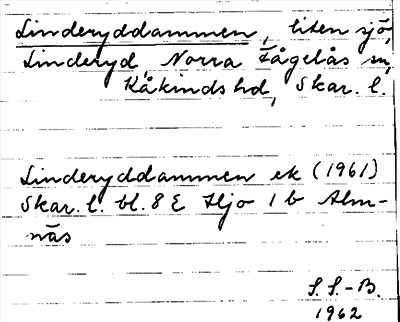 Linderyddammen, liten sjö,
Linderyd, Norra Fågelås sn,
Kåkinds hd, Skar. l.
Linderyddammen ek (1961)
Skar. l. bl. 8 E Hjo 1 b Alm-
näs
S. S.-B.
1962